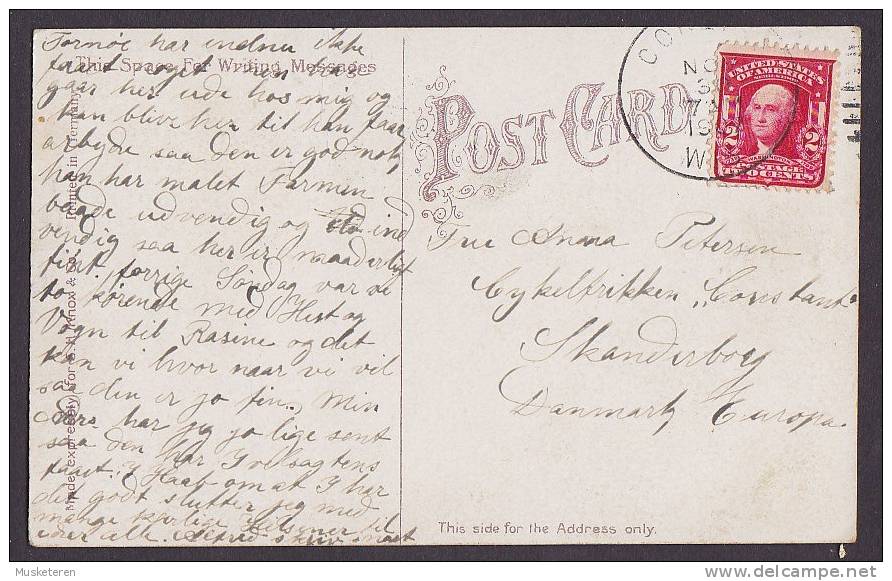 Tornöe har endnu ikke
faaet noget men han
This Space For Writing Messages
gaar her ude hos mig og
kan blive her til han faar
arbejde saa den er god nok
han har malet Farmen
baade udvendig og ind
vendig saa her er
fint, forrige Söndag var vi
to körende med Hest og
Vogn til Rasine og det
kan vi hvor naar vi vil
saa den er jo fin. Min
har jeg jo lige sent
saa den har I velsagtens
faaet. I Haab om at I har
det godt slutter jeg med
mange kjerlige Hilsener til
eder alle. skriv snart
Made expressly for S. H. Knox & Co. Printed in Germany
POST CARD
NO
3
7
190
W
UNITED STATES
OF AMERICA
2 2
WASHINGTON
POSTAGE
TWO CENTS
Frue Anna Petersen
Cykelfabrikken "Constant"
Skanderborg
Danmark Europa.
This side for the Address only.
Musketeren
delcampe.net